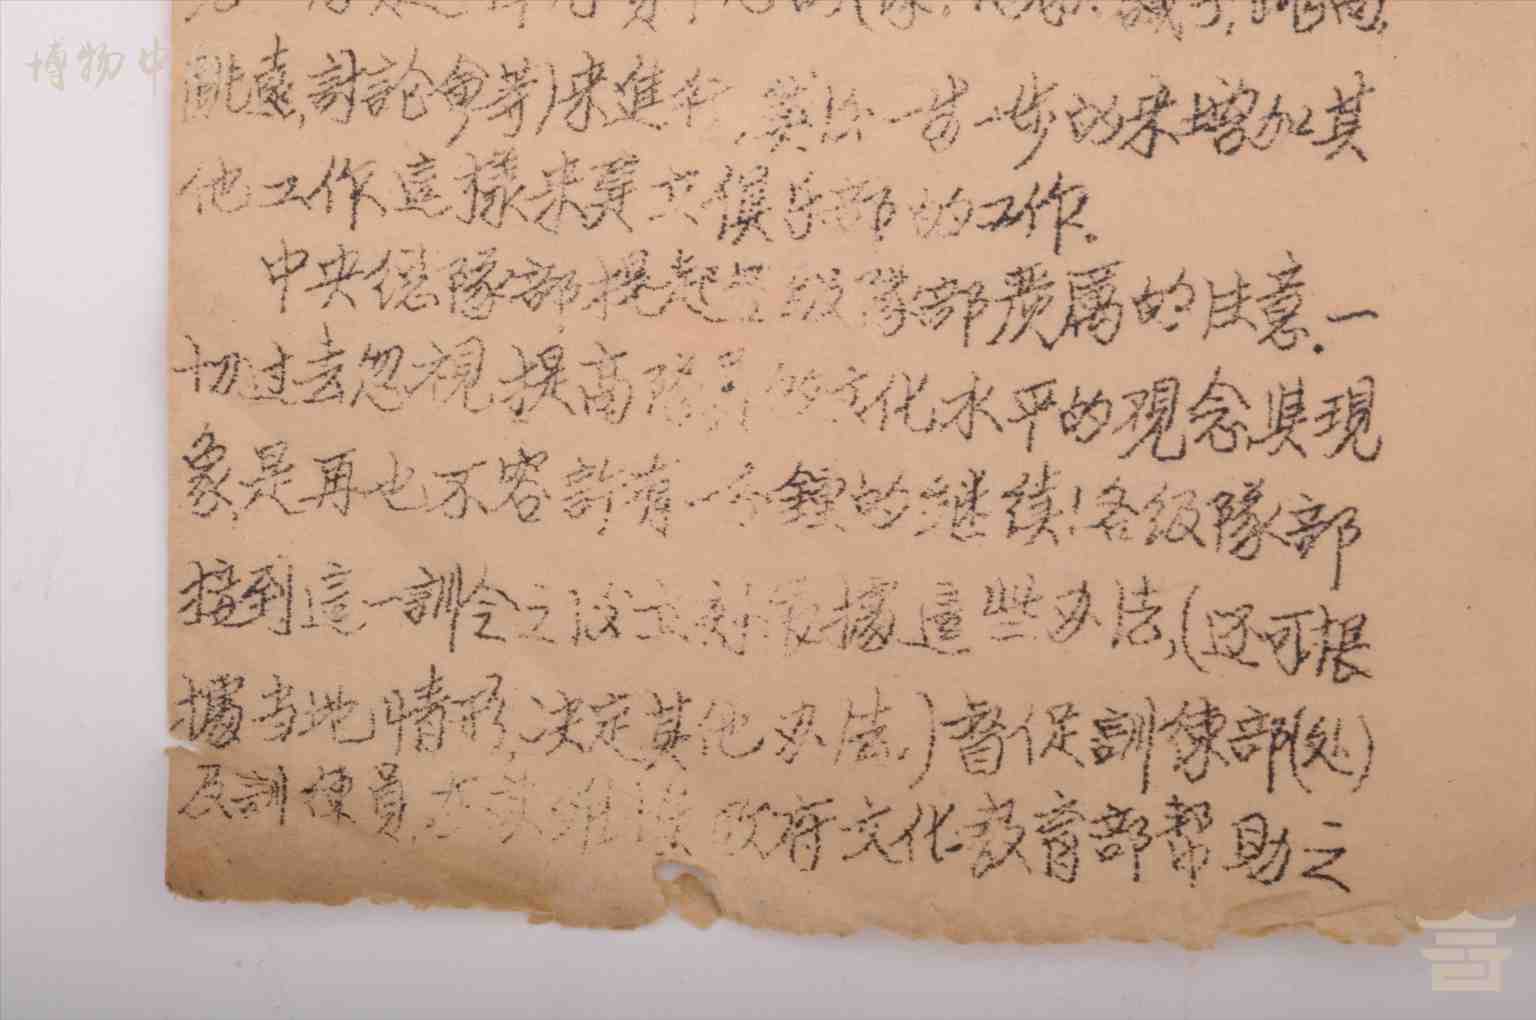 博物中
跳遠,討論會等)来進行,然后一步一步的来增加其
他工作,這樣来建立俱乐部的工作.
中央總隊部提起各级隊部嚴厲的注意.一
切过去忽視提高隊員的文化水平的观念與現
象,是再也不容許有一分鐘的继续!各级隊部
接到這一訓令之後,立刻根據這些办法,(还可根
據当地情形,决定其他办法.)督促訓練部(处)
及訓練員,政府文化教育部幫助之